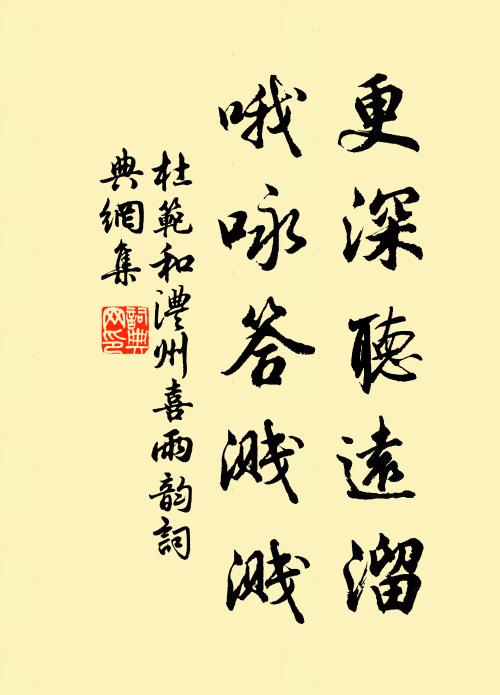 更深聽遠溜
哦咏答濺濺
杜範和澧州喜雨韵詞
典網集
詞典
网印